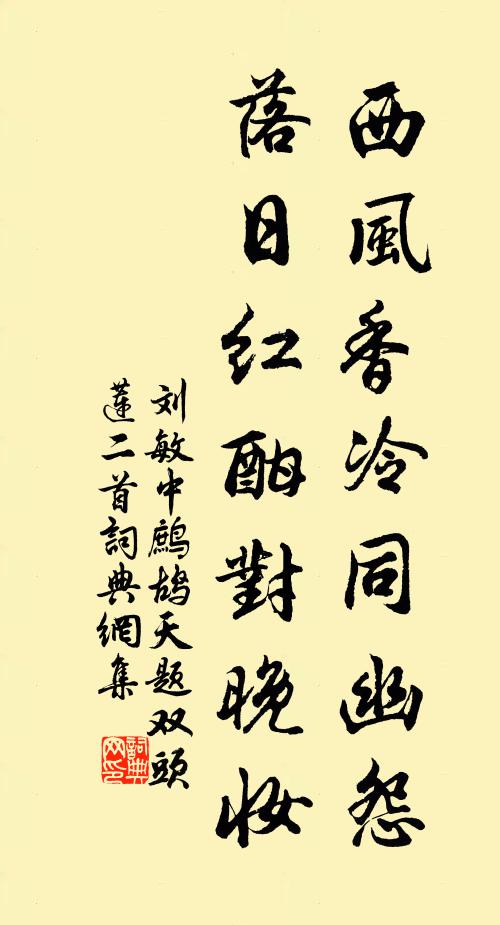 西風香冷同幽怨
落日红酣對晚妆
刘敏中鷓鴣天题双頭
蓮二首詞典網集
詞典
网印